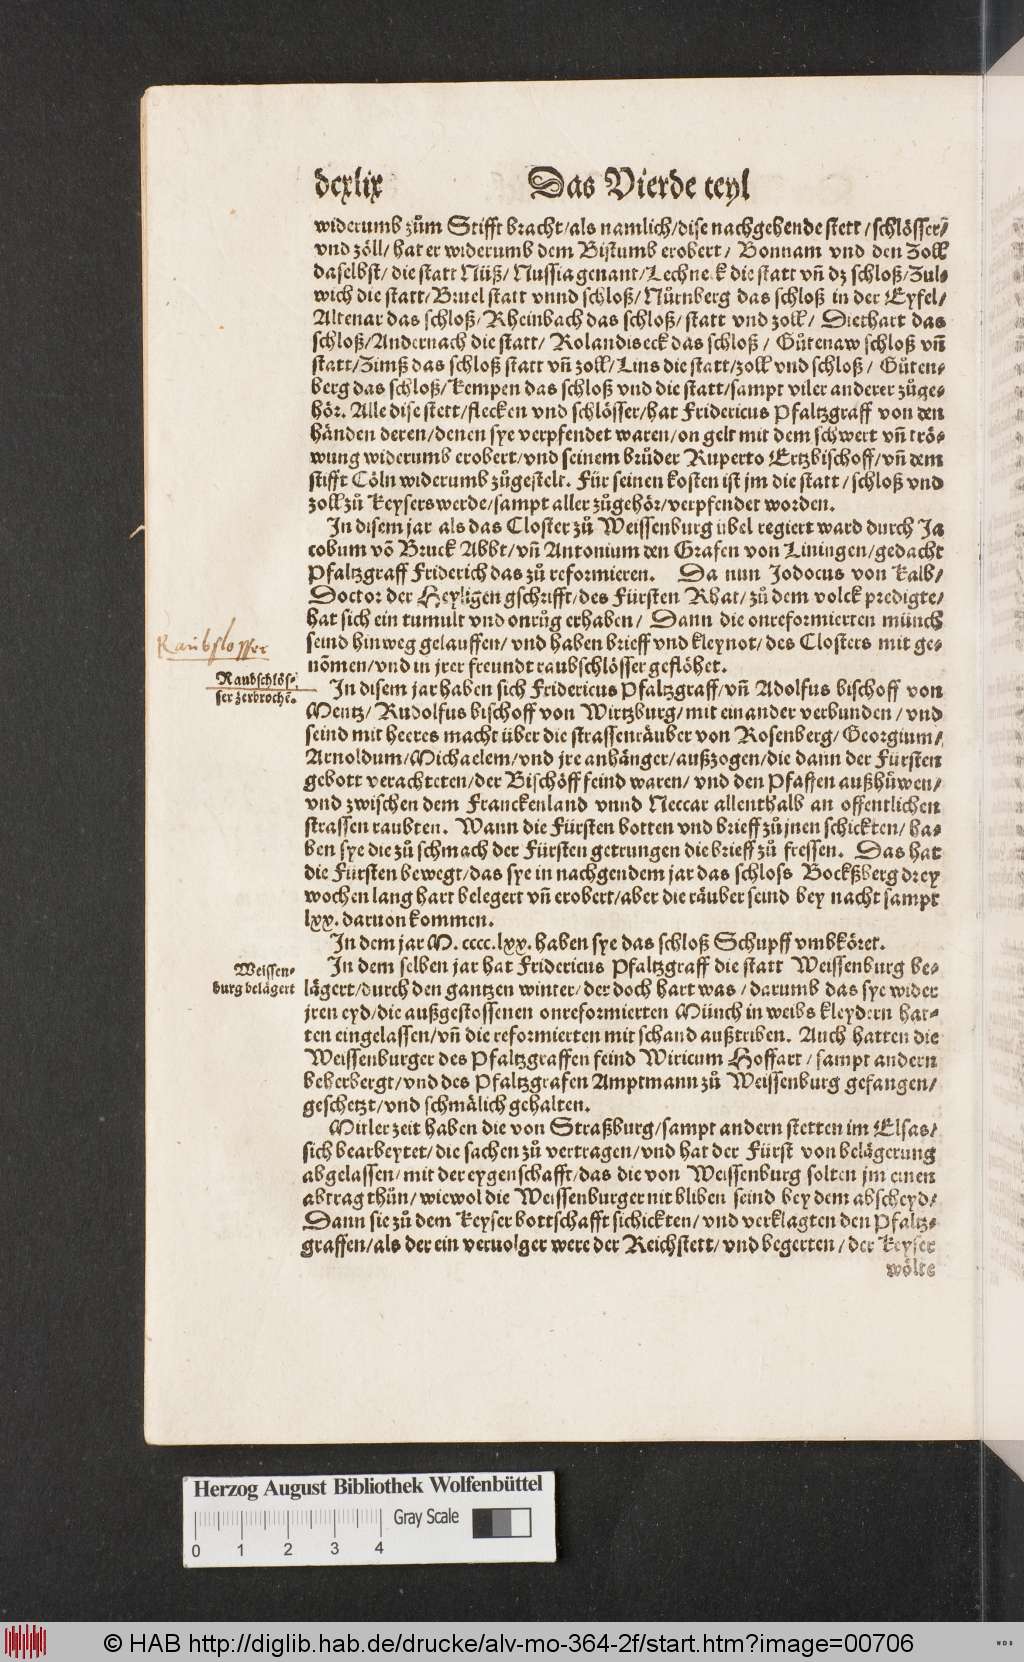 dcxlix Das Vierde teyl
widerumb zům Stifft bracht/als namlich/dise nachgehende stett/schlösser/
vnd zöll/hat er widerumb dem Bistumb erobert/ Bonnam vnd den Zoll
daselbst/die statt Nüß/Nussia genant/Lechneck die statt vñ dz schloß/Zul-
wich die statt/Bruel statt vnnd schloß/Nůrnberg das schloß in der Eyfel/
Altenar das schloß/Rheinbach das schloß/statt vnd zoll/ Diethart das
schloß/Andernach die statt/ Rolandiseck das schloß/ Gůtenaw schloß vñ
statt/Zimß das schloß statt vñ zoll/Lins die statt/zoll vnd schloß/ Gůten-
berg das schloß/Kempen das schloß vnd die statt/sampt viler anderer zůge-
hör. Alle dise stett/flecken vnd schlösser/hat Fridericus Pfaltzgraff von den
händen deren/denen sye verpfendet waren/on gelt mit dem schwert vñ trö-
wung widerumb erobert/vnd seinem brůder Ruperto Ertzbischoff/vñ dem
stifft Cöln widerumb zůgestelt. Für seinen kosten ist jm die statt/schloß vnd
zoll zů Keyserswerde/sampt aller zůgehör/verpfendet worden.
In disem jar als das Closter zů Weissenburg übel regiert ward durch Ja
cobum võ Bruck Abbt/vñ Antonium den Grafen von Liningen/gedacht
Pfaltzgraff Friderich das zů reformieren. Da nun Jodocus von Kalb/
Doctor der Heyligen gschrifft/des Fürsten Rhat/zů dem volck predigte/
hat sich ein tumult vnd onrůg erhaben/ Dann die onreformierten münch
seind hinweg gelauffen/vnd haben brieff vnd kleynot/des Closters mit ge-
nõmen/vnd in jrer freundt raubschlösser geflöhet.
Raubslosser
Raubschlös-
ser zerbrochẽ.
In disem jar haben sich Fridericus Pfaltzgraff/vñ Adolfus bischoff von
Mentz/Rudolfus bischoff von Wirtzburg/mit einander verbunden/vnd
seind mit heeres macht über die strassenräuber von Rosenberg/Georgium/
Arnoldum/Michaelem/vnd jre anhänger/außzogen/die dann der Fürsten
gebott verachteten/der Bischöff feind waren/vnd den Pfaffen außhůwen/
vnd zwischen dem Franckenland vnnd Neccar allenthalb an offentlichen
strassen raubten. Wann die Fürsten botten vnd brieff zů jnen schickten/ha-
ben sye die zů schmach der Fürsten getrungen die brieff zů fressen. Das hat
die Fürsten bewegt/das sye in nachgendem jar das schloss Bockßberg drey
wochen lang hart belegert vñ erobert/aber die räuber seind bey nacht sampt
lxx. daruon kommen.
In dem jar M. cccc. lxx. haben sye das schloß Schupff vmbköret.
Weissen-
burg belägert
In dem selben jar hat Fridericus Pfaltzgraff die statt Weissenburg be-
lägert/durch den gantzen winter/der doch hart was/darumb das sye wider
jren eyd/die außgestossenen onreformierten Münch in weibs kleydern hat-
ten eingelassen/vñ die reformierten mit schand außtriben. Auch hatten die
Weissenburger des Pfaltzgraffen feind Wiricum Hoffart/sampt andern
beherbergt/vnd des Pfaltzgrafen Amptmann zů Weissenburg gefangen/
geschetzt/vnd schmälich gehalten.
Mitler zeit haben die von Straßburg/sampt andern stetten im Elsas/
sich bearbeytet/die sachen zů vertragen/vnd hat der Fürst von belägerung
abgelassen/mit der eygenschafft/das die von Weissenburg solten jm einen
abtrag thůn/wiewol die Weissenburger nit bliben seind bey dem abscheyd/
Dann sie zů dem Keyser bottschafft sichickten/vnd verklagten den Pfaltz-
graffen/als der ein veruolger were der Reichstett/vnd begerten/der Keyser
wölte
Herzog August Bibliothek Wolfenbüttel
Gray Scale
0 1 2 3 4
© HAB http://diglib.hab.de/drucke/alv-mo-364-2f/start.htm?image=00706